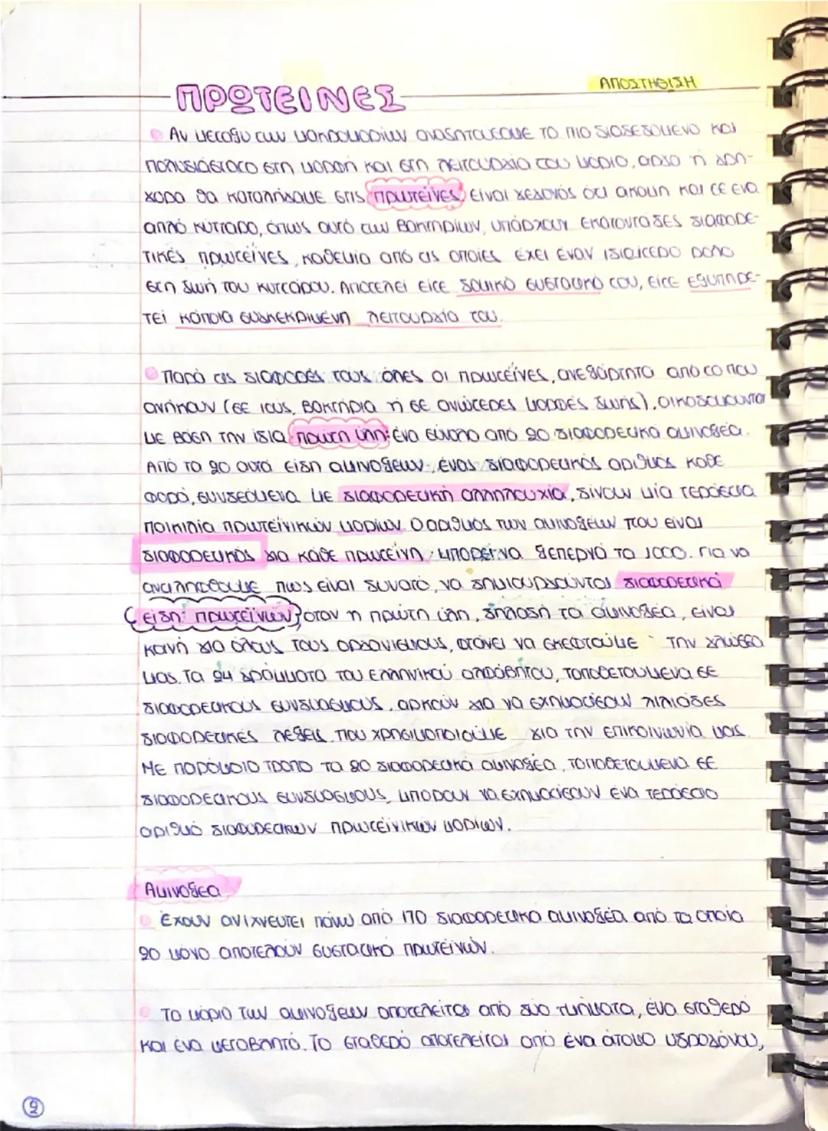 ΑΠΟΣΤΗΘΙΣΗ
ΠΡΩΤΕΙΝΕΣ
Αν μεταξύ των μακρομορίων αναζητούσαμε το πιο διαδεδομένο και
πολυδιάστατο στη μορφή και στη λειτουργία του μόριο, αργά ή γρή-
γορα θα καταλήγαμε στις πρωτεΐνες. Είναι γεγονός ότι ακόμη και σε ένα
απλό κύτταρο, όπως αυτό των βακτηρίων, υπάρχουν εκατοντάδες διαφορε-
τικές πρωτεΐνες, καθεμία από τις οποίες έχει έναν ιδιαίτερο ρόλο
στη ζωή του κυττάρου. Αποτελεί είτε δομικό συστατικό του, είτε εξυπηρε-
τεί κάποια συγκεκριμένη λειτουργία του.
Παρά τις διαφορές τους όλες οι πρωτεΐνες, ανεξάρτητα από το που
ανήκουν (σε ιούς, βακτήρια ή σε ανώτερες μορφές ζωής), οικοδομούνται
με βάση την ίδια πρώτη ύλη: ένα σύνολο από 20 διαφορετικά αμινοξέα.
Από τα 20 αυτά είδη αμινοξέων, ένας διαφορετικός αριθμός κάθε
φορά, συνδεόμενα με διαφορετική αλληλουχία, δίνουν μία τεράστια
ποικιλία πρωτεϊνικών μορίων. Ο αριθμός των αμινοξέων που είναι
διαφορετικός για κάθε πρωτεΐνη, μπορεί να ξεπερνά το 1000. Για να
αντιληφθούμε πως είναι δυνατό, να δημιουργούνται διαφορετικά
είδη πρωτεϊνών, όταν η πρώτη ύλη, δηλαδή τα αμινοξέα, είναι
κοινή για όλους τους οργανισμούς, φτάνει να σκεφτούμε την γλώσσα
μας. Τα 24 γράμματα του ελληνικού αλφάβητου, τοποθετούμενα σε
διαφορετικούς συνδυασμούς, αρκούν για να σχηματίσουν χιλιάδες
διαφορετικές λέξεις που χρησιμοποιούμε για την επικοινωνία μας.
Με παρόμοιο τρόπο τα 20 διαφορετικά αμινοξέα, τοποθετούμενα σε
διαφορετικούς συνδυασμούς, μπορούν να σχηματίσουν ένα τεράστιο
αριθμό διαφορετικών πρωτεϊνικών μορίων.
Αμινοξέα
Έχουν ανιχνευτεί πάνω από 170 διαφορετικά αμινοξέα από τα οποία
20 μόνο αποτελούν συστατικά πρωτεϊνών.
Το μόριο των αμινοξέων αποτελείται από δύο τμήματα, ένα σταθερό
και ένα μεταβλητό. Το σταθερό αποτελείται από ένα άτομο υδρογόνου,
2